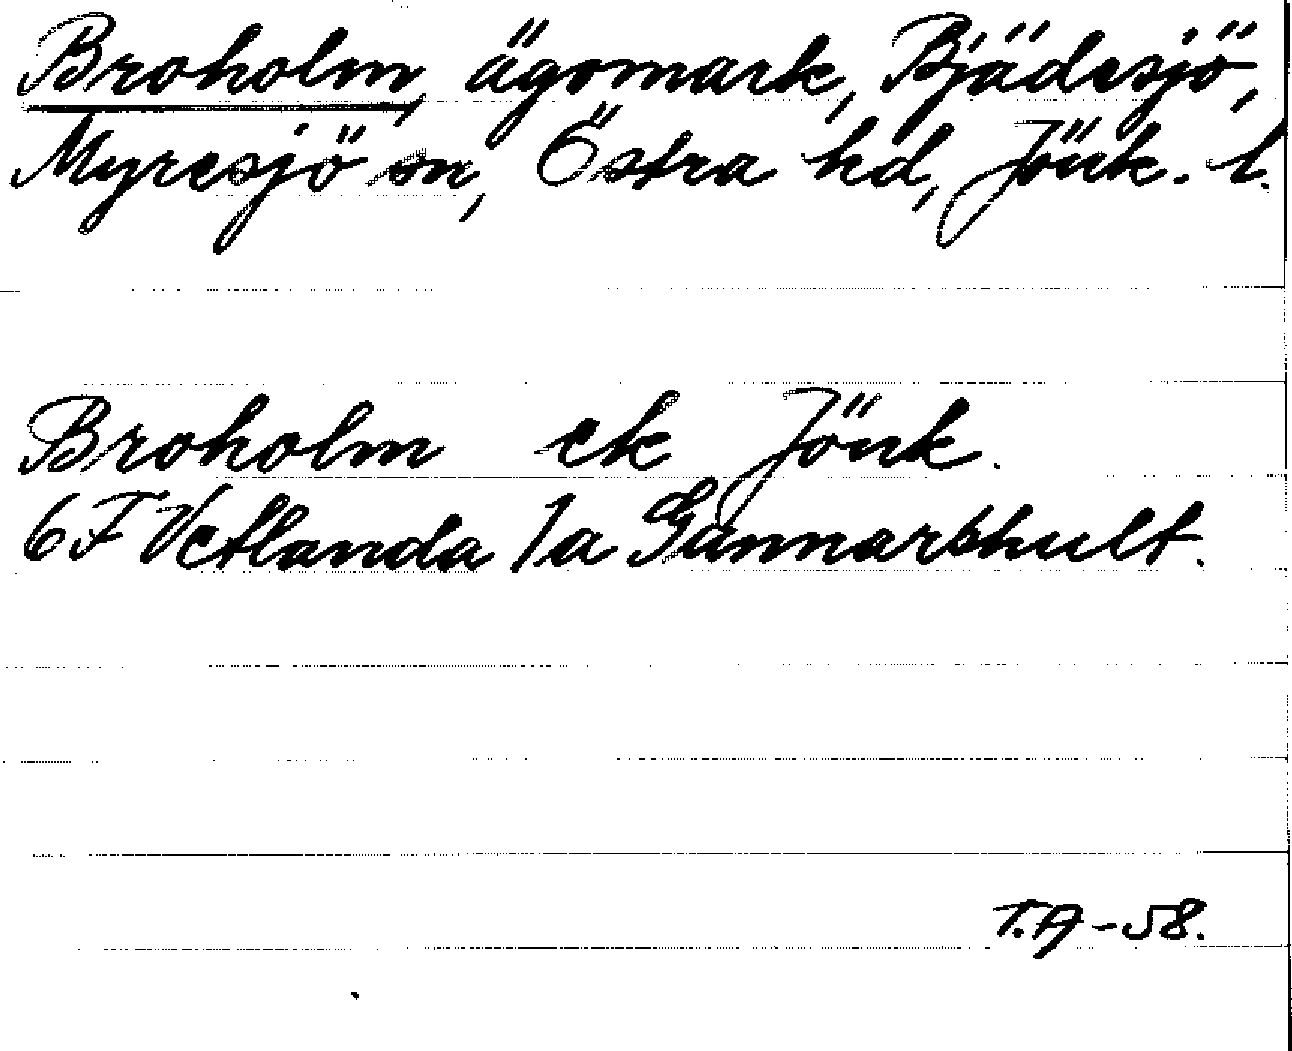 Broholm, ägomark, Bjädesjö,
Myresjö sn, Östra hd, Jönk. l.
Broholm ek Jönk.
6F Vetlanda 1a Gunnarshult.
T.A -58.